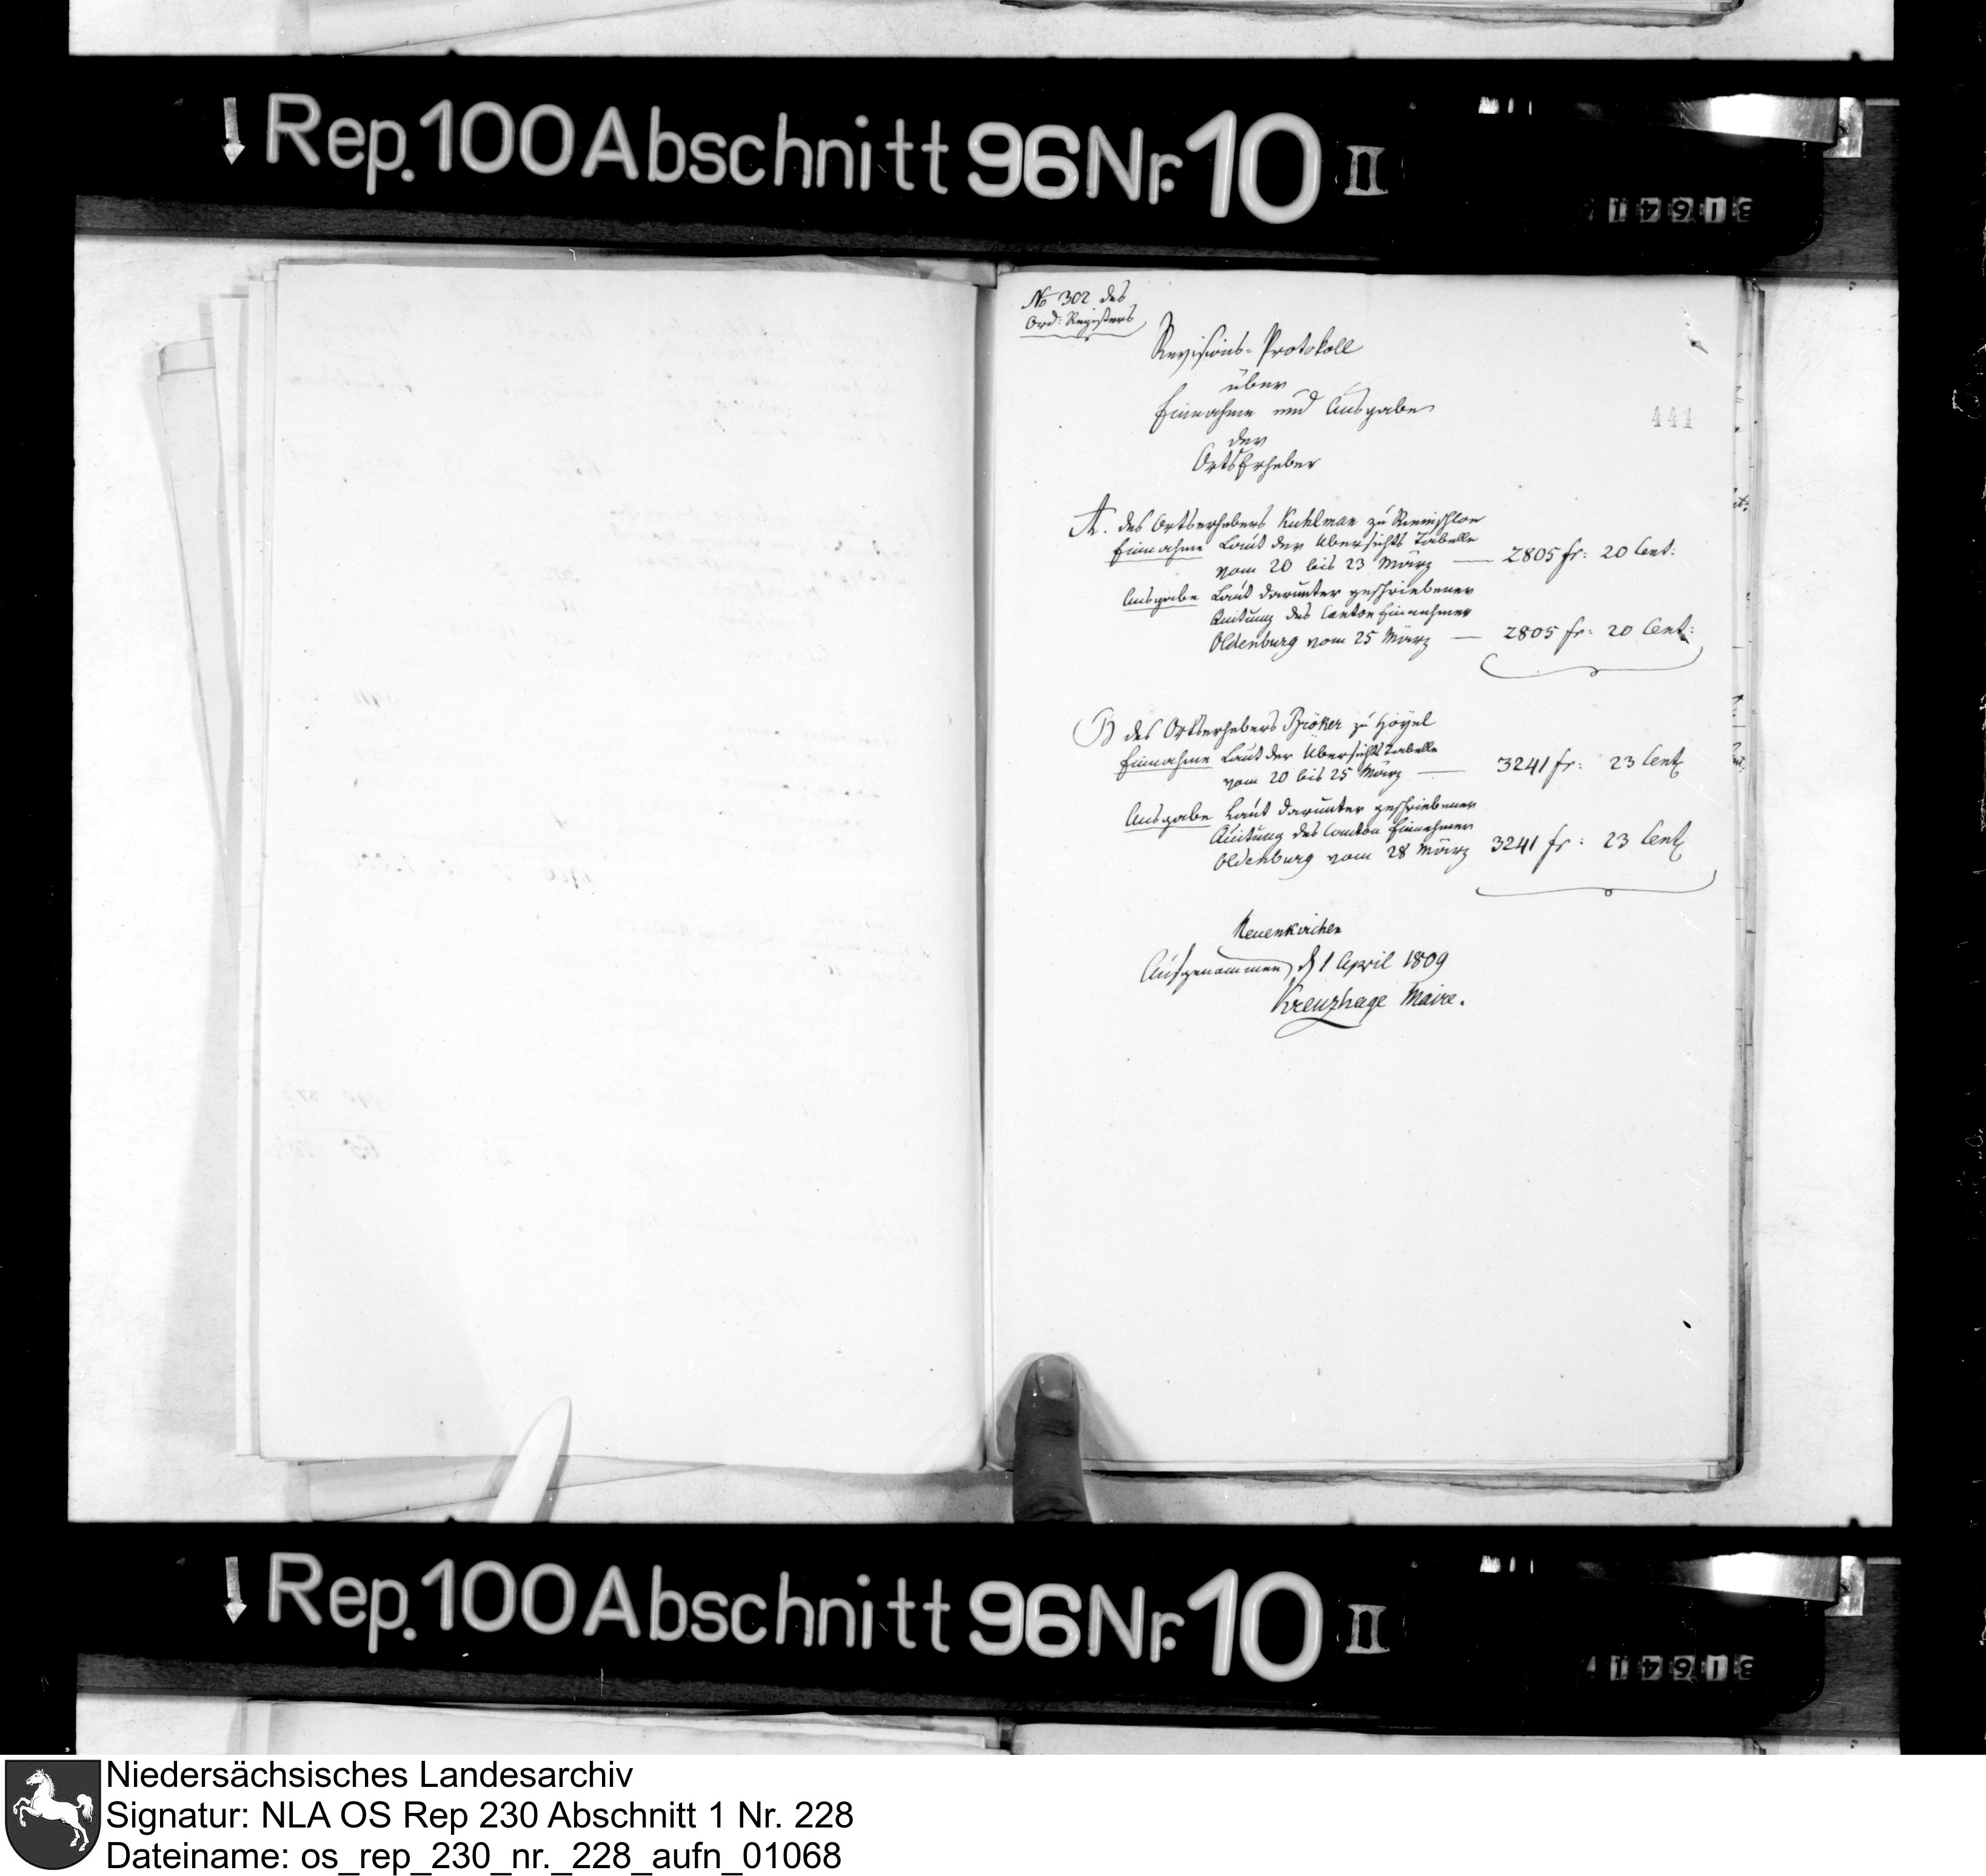 Rep. 100 Abschnitt 96 Nr. 10 II
No 302 des
Ord: Registers
Revisions-Protokoll
über
Einnahme und Ausgabe
der
OrtsErheber
441
A. des Ortserhebers Kuhlman zu Riemsloe
Einnahme Laut der Ubersichts Tabelle
vom 20 bis 23 März — 2805 fr: 20 Cent:
Ausgabe Laut darunter geschriebener
Quitung des Canton Einnehmer
Oldenburg vom 25 März — 2805 fr: 20 Cent:
B des Ortserhebers Bröker zu Hoyel
Einnahme Laut der Übersichts Tabelle
vom 20 bis 25 März — 3241 fr: 23 Cent
Ausgabe Laut darunter geschriebener
Quitung des Canton Einnehmer
Oldenburg vom 28 März 3241 fr: 23 Cent
Neuenkirchen
Aufgenommen d 1 April 1809
Kreuzhage Maire.
Rep. 100 Abschnitt 96 Nr. 10 II
Niedersächsisches Landesarchiv
Signatur: NLA OS Rep 230 Abschnitt 1 Nr. 228
Dateiname: os_rep_230_nr._228_aufn_01068